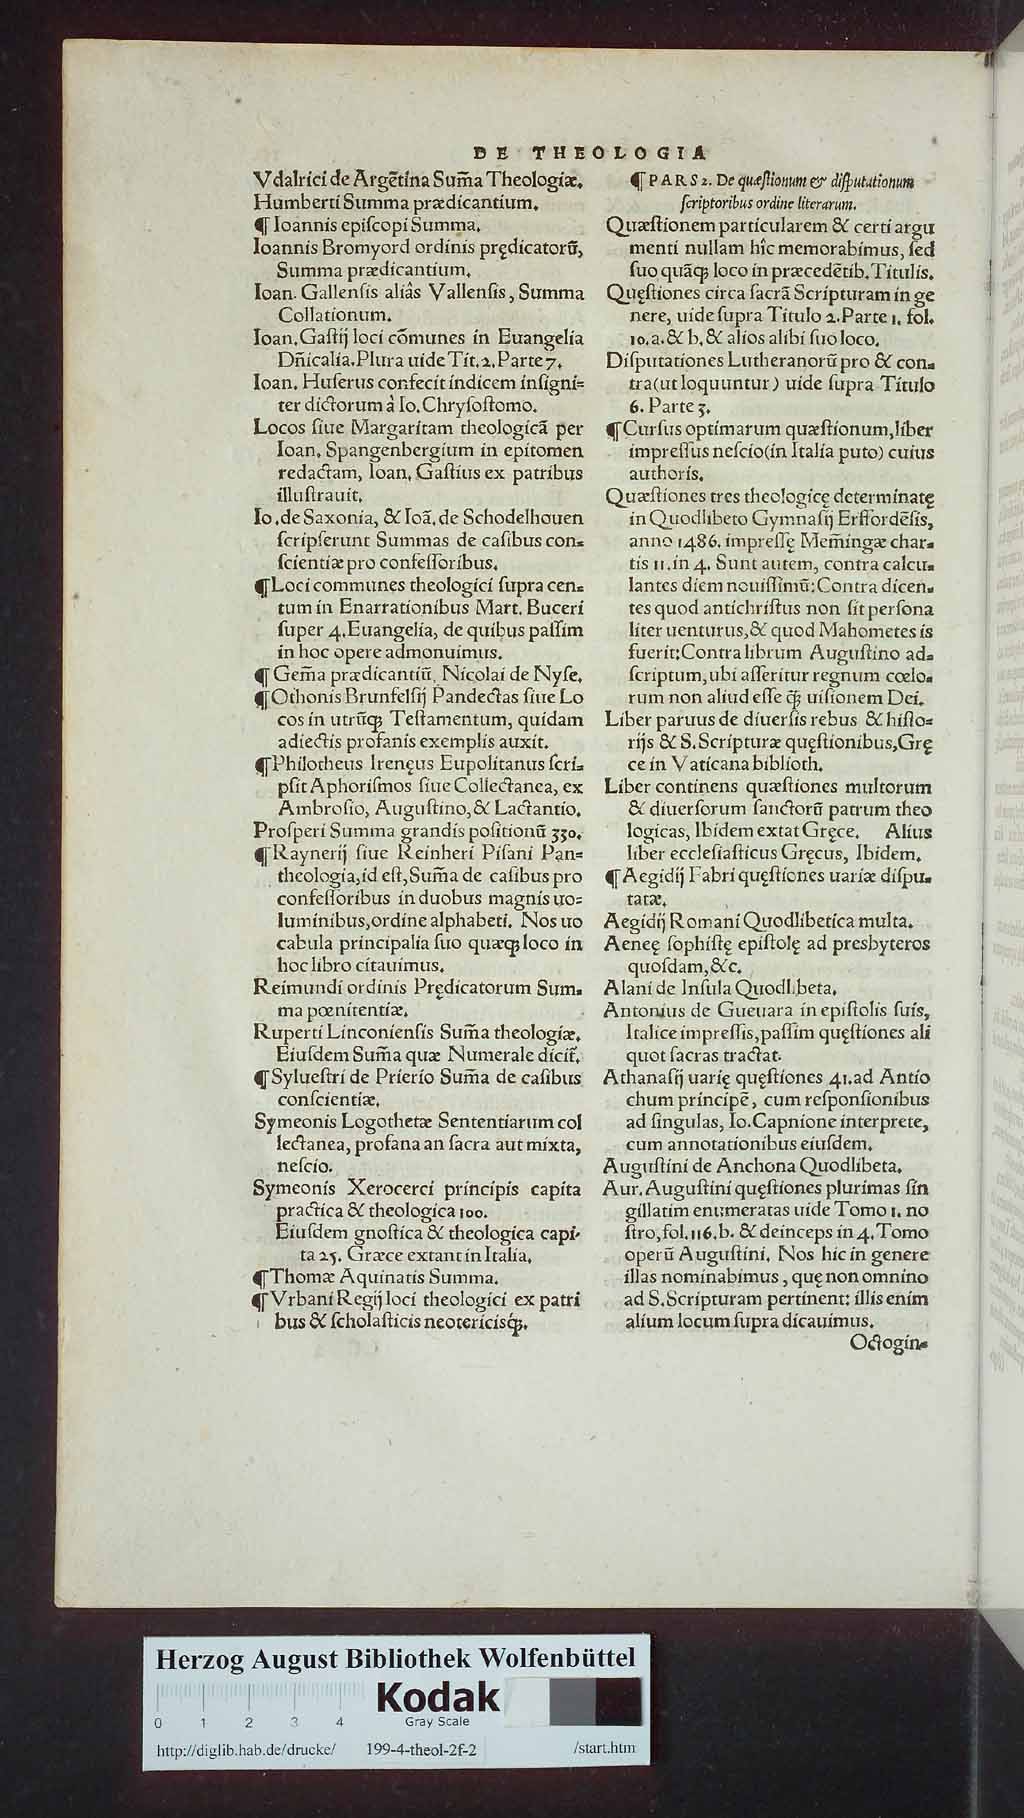 DE THEOLOGIA
Vdalrici de Argẽtina Sum̃a Theologiæ.
Humberti Summa prædicantium.
¶ Ioannis epiſcopi Summa.
Ioannis Bromyord ordinis prędicatorũ,
Summa prædicantium.
Ioan. Gallenſis aliâs Vallenſis, Summa
Collationum.
Ioan. Gaſtij loci cõmunes in Euangelia
Dñicalia. Plura uide Tit. 2. Parte 7.
Ioan. Huſerus confecit indicem inſigni=
ter dictorum à Io. Chryſoſtomo.
Locos ſiue Margaritam theologicã per
Ioan. Spangenbergium in epitomen
redactam, Ioan. Gaſtius ex patribus
illuſtrauit.
Io. de Saxonia, & Ioã. de Schodelhouen
ſcripſerunt Summas de caſibus con=
ſcientiæ pro confeſſoribus.
¶ Loci communes theologici ſupra cen=
tum in Enarrationibus Mart. Buceri
ſuper 4. Euangelia, de quibus paſſim
in hoc opere admonuimus.
¶ Gem̃a prædicantiũ, Nicolai de Nyſe.
¶ Othonis Brunfelſij Pandectas ſiue Lo
cos in utrũq; Teſtamentum, quidam
adiectis profanis exemplis auxit.
¶ Philotheus Irenęus Eupolitanus ſcri=
pſit Aphoriſmos ſiue Collectanea, ex
Ambroſio, Auguſtino, & Lactantio.
Proſperi Summa grandis poſitionũ 330.
¶ Raynerij ſiue Reinheri Piſani Pan=
theologia, id eſt, Sum̃a de caſibus pro
confeſſoribus in duobus magnis uo=
luminibus, ordine alphabeti. Nos uo
cabula principalia ſuo quæq; loco in
hoc libro citauimus.
Reimundi ordinis Prędicatorum Sum=
ma pœnitentiæ.
Ruperti Linconienſis Sum̃a theologiæ.
Eiuſdem Sum̃a quæ Numerale dicit̃.
¶ Sylueſtri de Prierio Sum̃a de caſibus
conſcientiæ.
Symeonis Logothetæ Sententiarum col
lectanea, profana an ſacra aut mixta,
neſcio.
Symeonis Xerocerci principis capita
practica & theologica 100.
Eiuſdem gnoſtica & theologica capi=
ta 25. Græce extant in Italia.
¶ Thomæ Aquinatis Summa.
¶ Vrbani Regij loci theologici ex patri
bus & ſcholaſticis neotericisq́;.
¶ PARS 2. De quæſtionum & diſputationum
ſcriptoribus ordine literarum.
Quæſtionem particularem & certi argu
menti nullam hîc memorabimus, ſed
ſuo quãq; loco in præcedẽtib. Titulis.
Quęſtiones circa ſacrã Scripturam in ge
nere, uide ſupra Titulo 2. Parte 1. fol.
10. a. & b. & alios alibi ſuo loco.
Diſputationes Lutheranorũ pro & con=
tra (ut loquuntur) uide ſupra Titulo
6. Parte 3.
¶ Curſus optimarum quæſtionum, liber
impreſſus neſcio (in Italia puto) cuius
authoris.
Quæſtiones tres theologicę determinatę
in Quodlibeto Gymnaſij Erffordẽſis,
anno 1486. impreſſę Mem̃ingæ char=
tis 11. in 4. Sunt autem, contra calcu=
lantes diem nouiſſimũ: Contra dicen=
tes quod antichriſtus non ſit perſona
liter uenturus, & quod Mahometes is
fuerit: Contra librum Auguſtino ad=
ſcriptum, ubi aſſeritur regnum cœlo=
rum non aliud eſſe q̃ʒ uiſionem Dei.
Liber paruus de diuerſis rebus & hiſto=
rijs & S. Scripturæ quęſtionibus, Grę
ce in Vaticana biblioth.
Liber continens quæſtiones multorum
& diuerſorum ſanctorũ patrum theo
logicas, Ibidem extat Gręce. Alius
liber eccleſiaſticus Gręcus, Ibidem.
¶ Aegidij Fabri quęſtiones uariæ diſpu=
tatæ.
Aegidij Romani Quodlibetica multa.
Aeneę ſophiſtę epiſtolę ad presbyteros
quoſdam, &c.
Alani de Inſula Quodlibeta.
Antonius de Gueuara in epiſtolis ſuis,
Italice impreſſis, paſſim quęſtiones ali
quot ſacras tractat.
Athanaſij uarię quęſtiones 41. ad Antio
chum principẽ, cum reſponſionibus
ad ſingulas, Io. Capnione interprete,
cum annotationibus eiuſdem.
Auguſtini de Anchona Quodlibeta.
Aur. Auguſtini quęſtiones plurimas ſin
gillatim enumeratas uide Tomo 1. no
ſtro, fol. 116. b. & deinceps in 4. Tomo
operũ Auguſtini. Nos hic in genere
illas nominabimus, quę non omnino
ad S. Scripturam pertinent: illis enim
alium locum ſupra dicauimus.
Octogin=
Herzog August Bibliothek Wolfenbüttel
Kodak
Gray Scale
0 1 2 3 4
http://diglib.hab.de/drucke/ 199-4-theol-2f-2 /start.htm